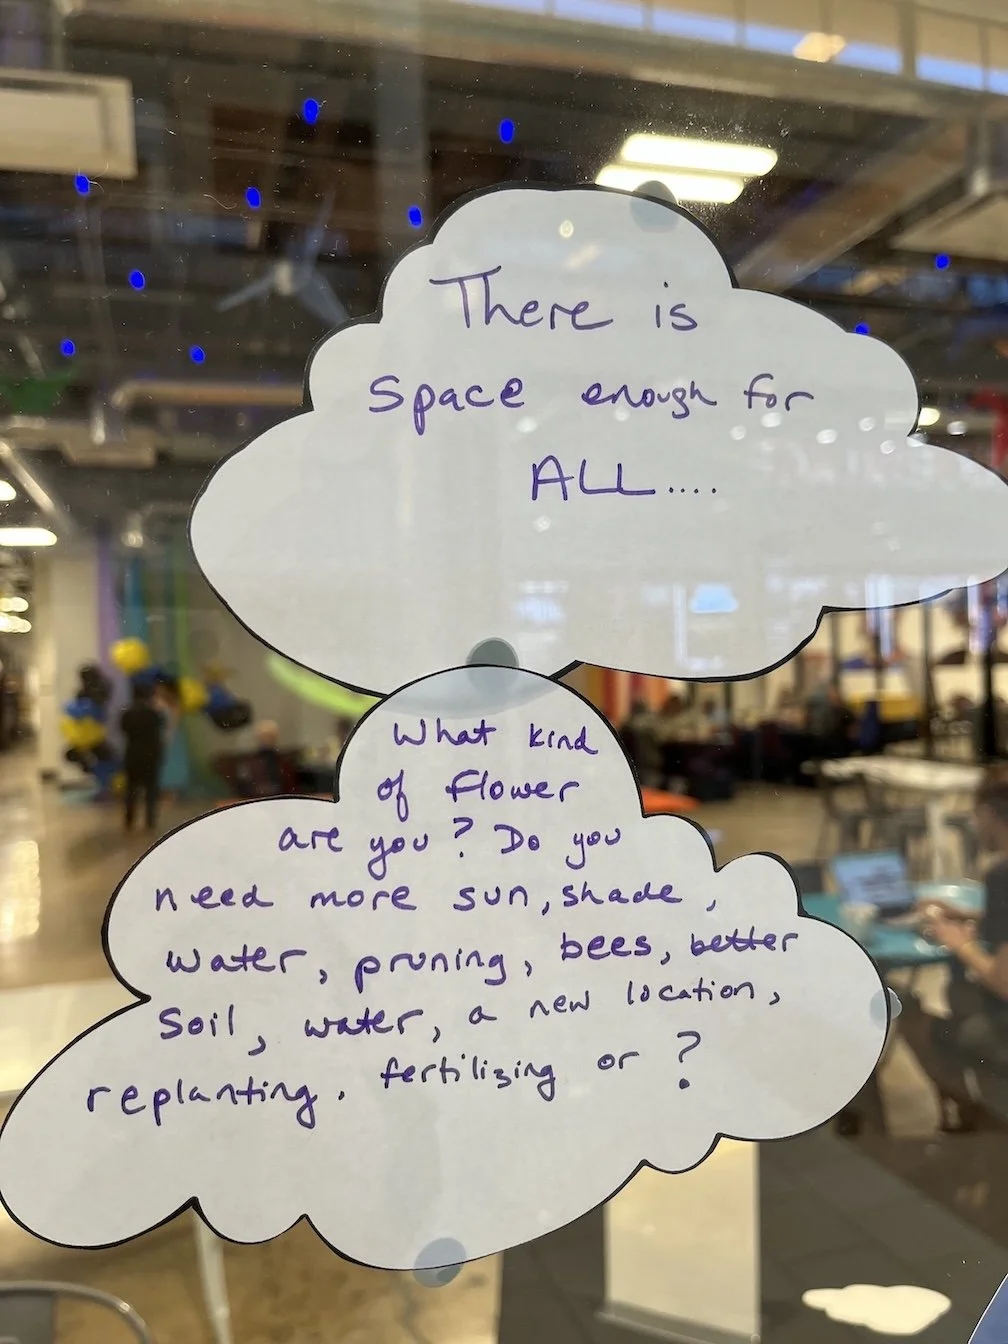 There is
space enough for
ALL....
What kind
of flower
are you? Do you
need more sun, shade,
water, pruning, bees, better
soil, water, a new location,
replanting. fertilizing or ?